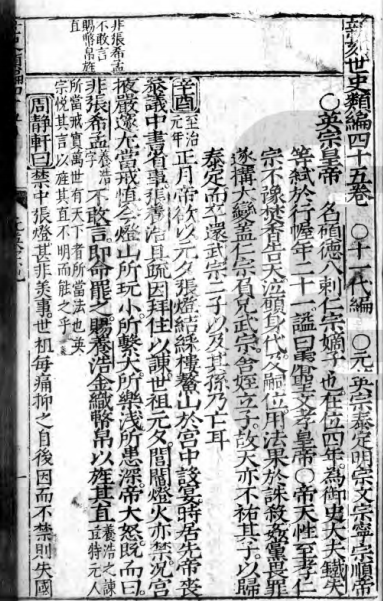 新刻世史類編四十五卷　○十一代編　○元英宗泰定明宗文宗寧宗順帝
○英宗皇帝　名碩德八剌仁宗嫡子也在位四年為御史大夫鐵失
等弒於行幄年二十一謚曰睿聖文孝皇帝○帝天性至孝仁
宗不豫焚香告天泣願身代及嗣位用法果於誅殺姦黨畏罪
遂構大變蓋仁宗負兄武宗舍姪立子故天亦不祐其子以歸
泰定而卒還武宗二子以及其孫乃亡耳
辛酉 至治元年 正月帝欲以元夕張燈結綵樓鰲山於宫中設宴時居先帝喪
叅議中書省事張養浩具疏因拜住以諫世祖元夕閭閻燈火亦禁况宫
掖嚴邃尤當戒慎今燈山所玩小所繫大所樂淺所患深帝大怒既而曰
非張希孟
不敢言
賜幣帛旌
直
非張希孟 養浩字 不敢言即命罷之賜養浩金織幣帛以旌其直 養浩之諫豈特元人
所當戒實萬世有天下者所當法也英
宗悅其言以旌其直不明而能之乎
周静軒曰禁中張燈甚非美事世祖每痛抑之自後因而不禁則失國